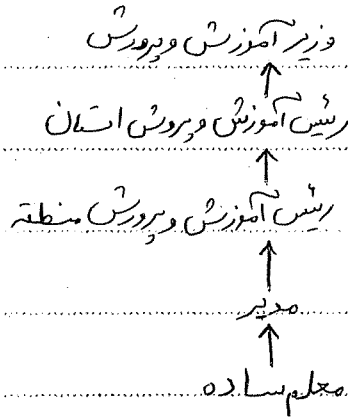 وزیر آموزش و پرورش
رئیس آموزش و پرورش استان
رئیس آموزش و پرورش منطقه
مدیر
معلم ساده